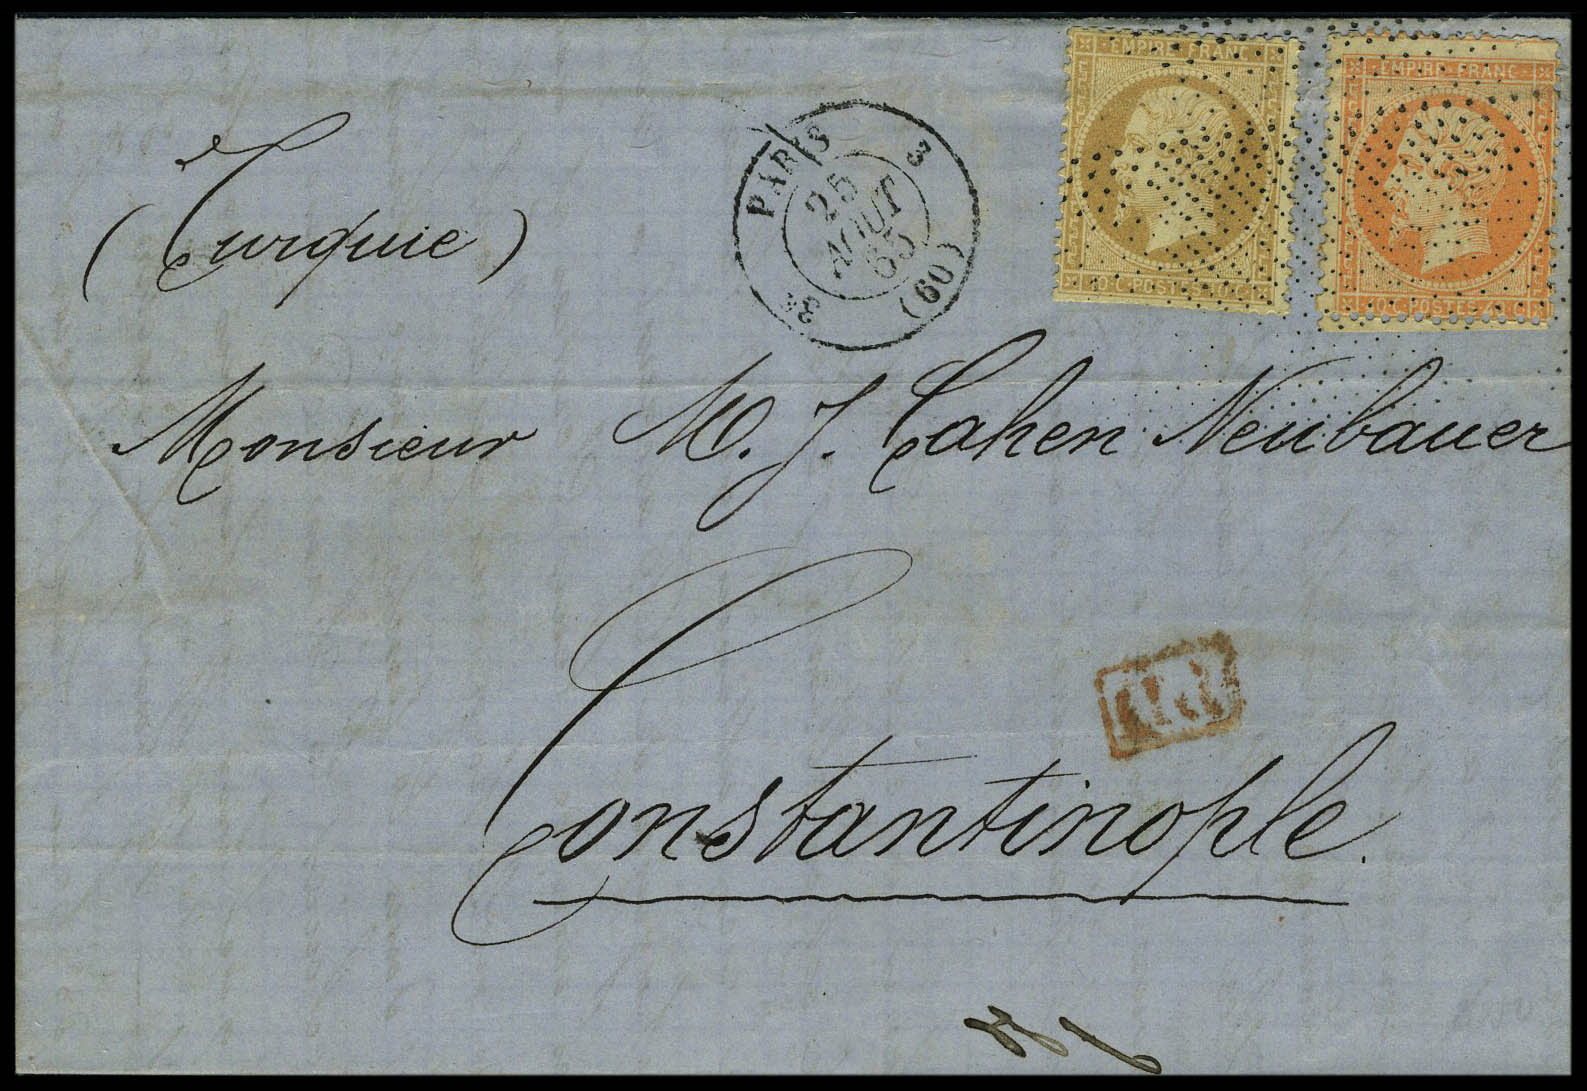 EMPIRE FRANC
EMPIRE FRANC
10 C POSTES 10 C
40 C POSTES 40 C
PARIS 3
25
AOUT
65
3E (60)
(Turquie)
Monsieur M. J. Cahen Neubauer
Constantinople.